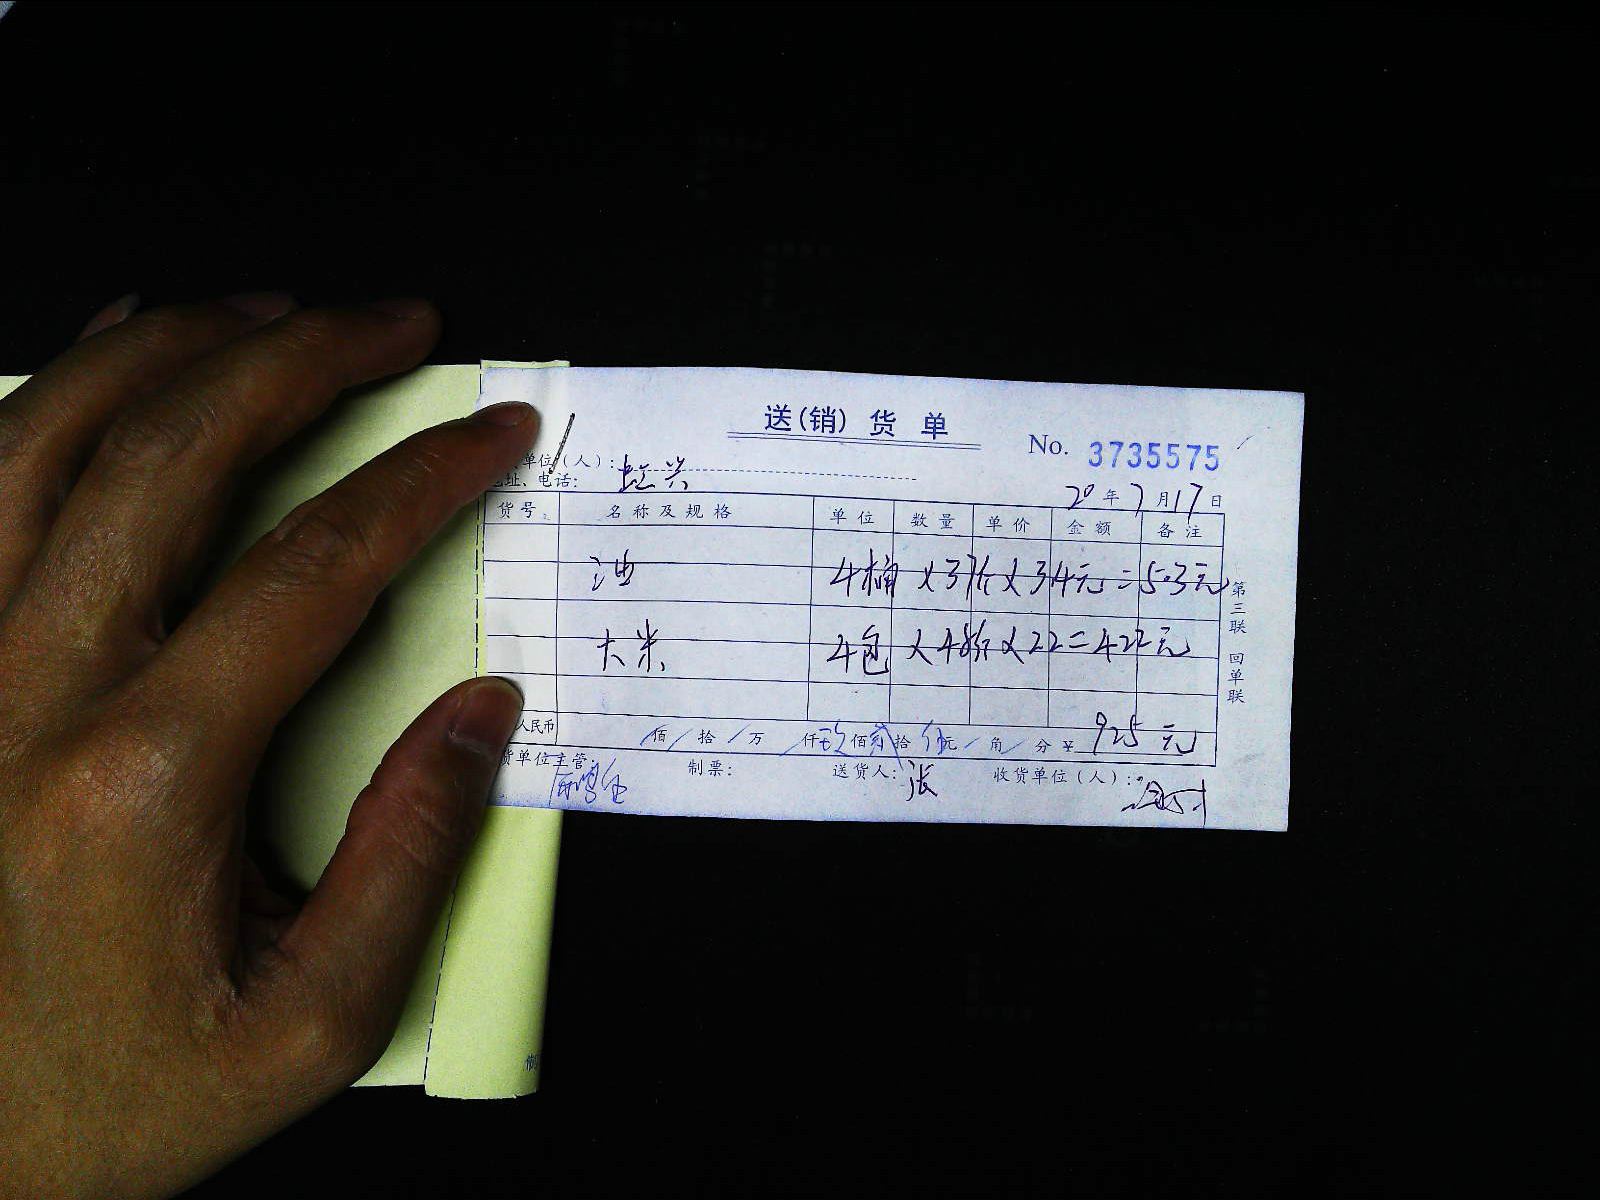 送(销)货单
No. 3735575
单位(人):
址、电话:
20年7月17日
货号 名称及规格 单位 数量 单价 金额 备注
油 4桶 ×37斤×34元=503元
大米 4包 ×48斤×22=422元
人民币 佰 拾 万 仟 玖佰贰拾伍元 角 分 ¥ 925元
货单位主管: 制票: 送货人:张 收货单位(人):
第三联 回单联